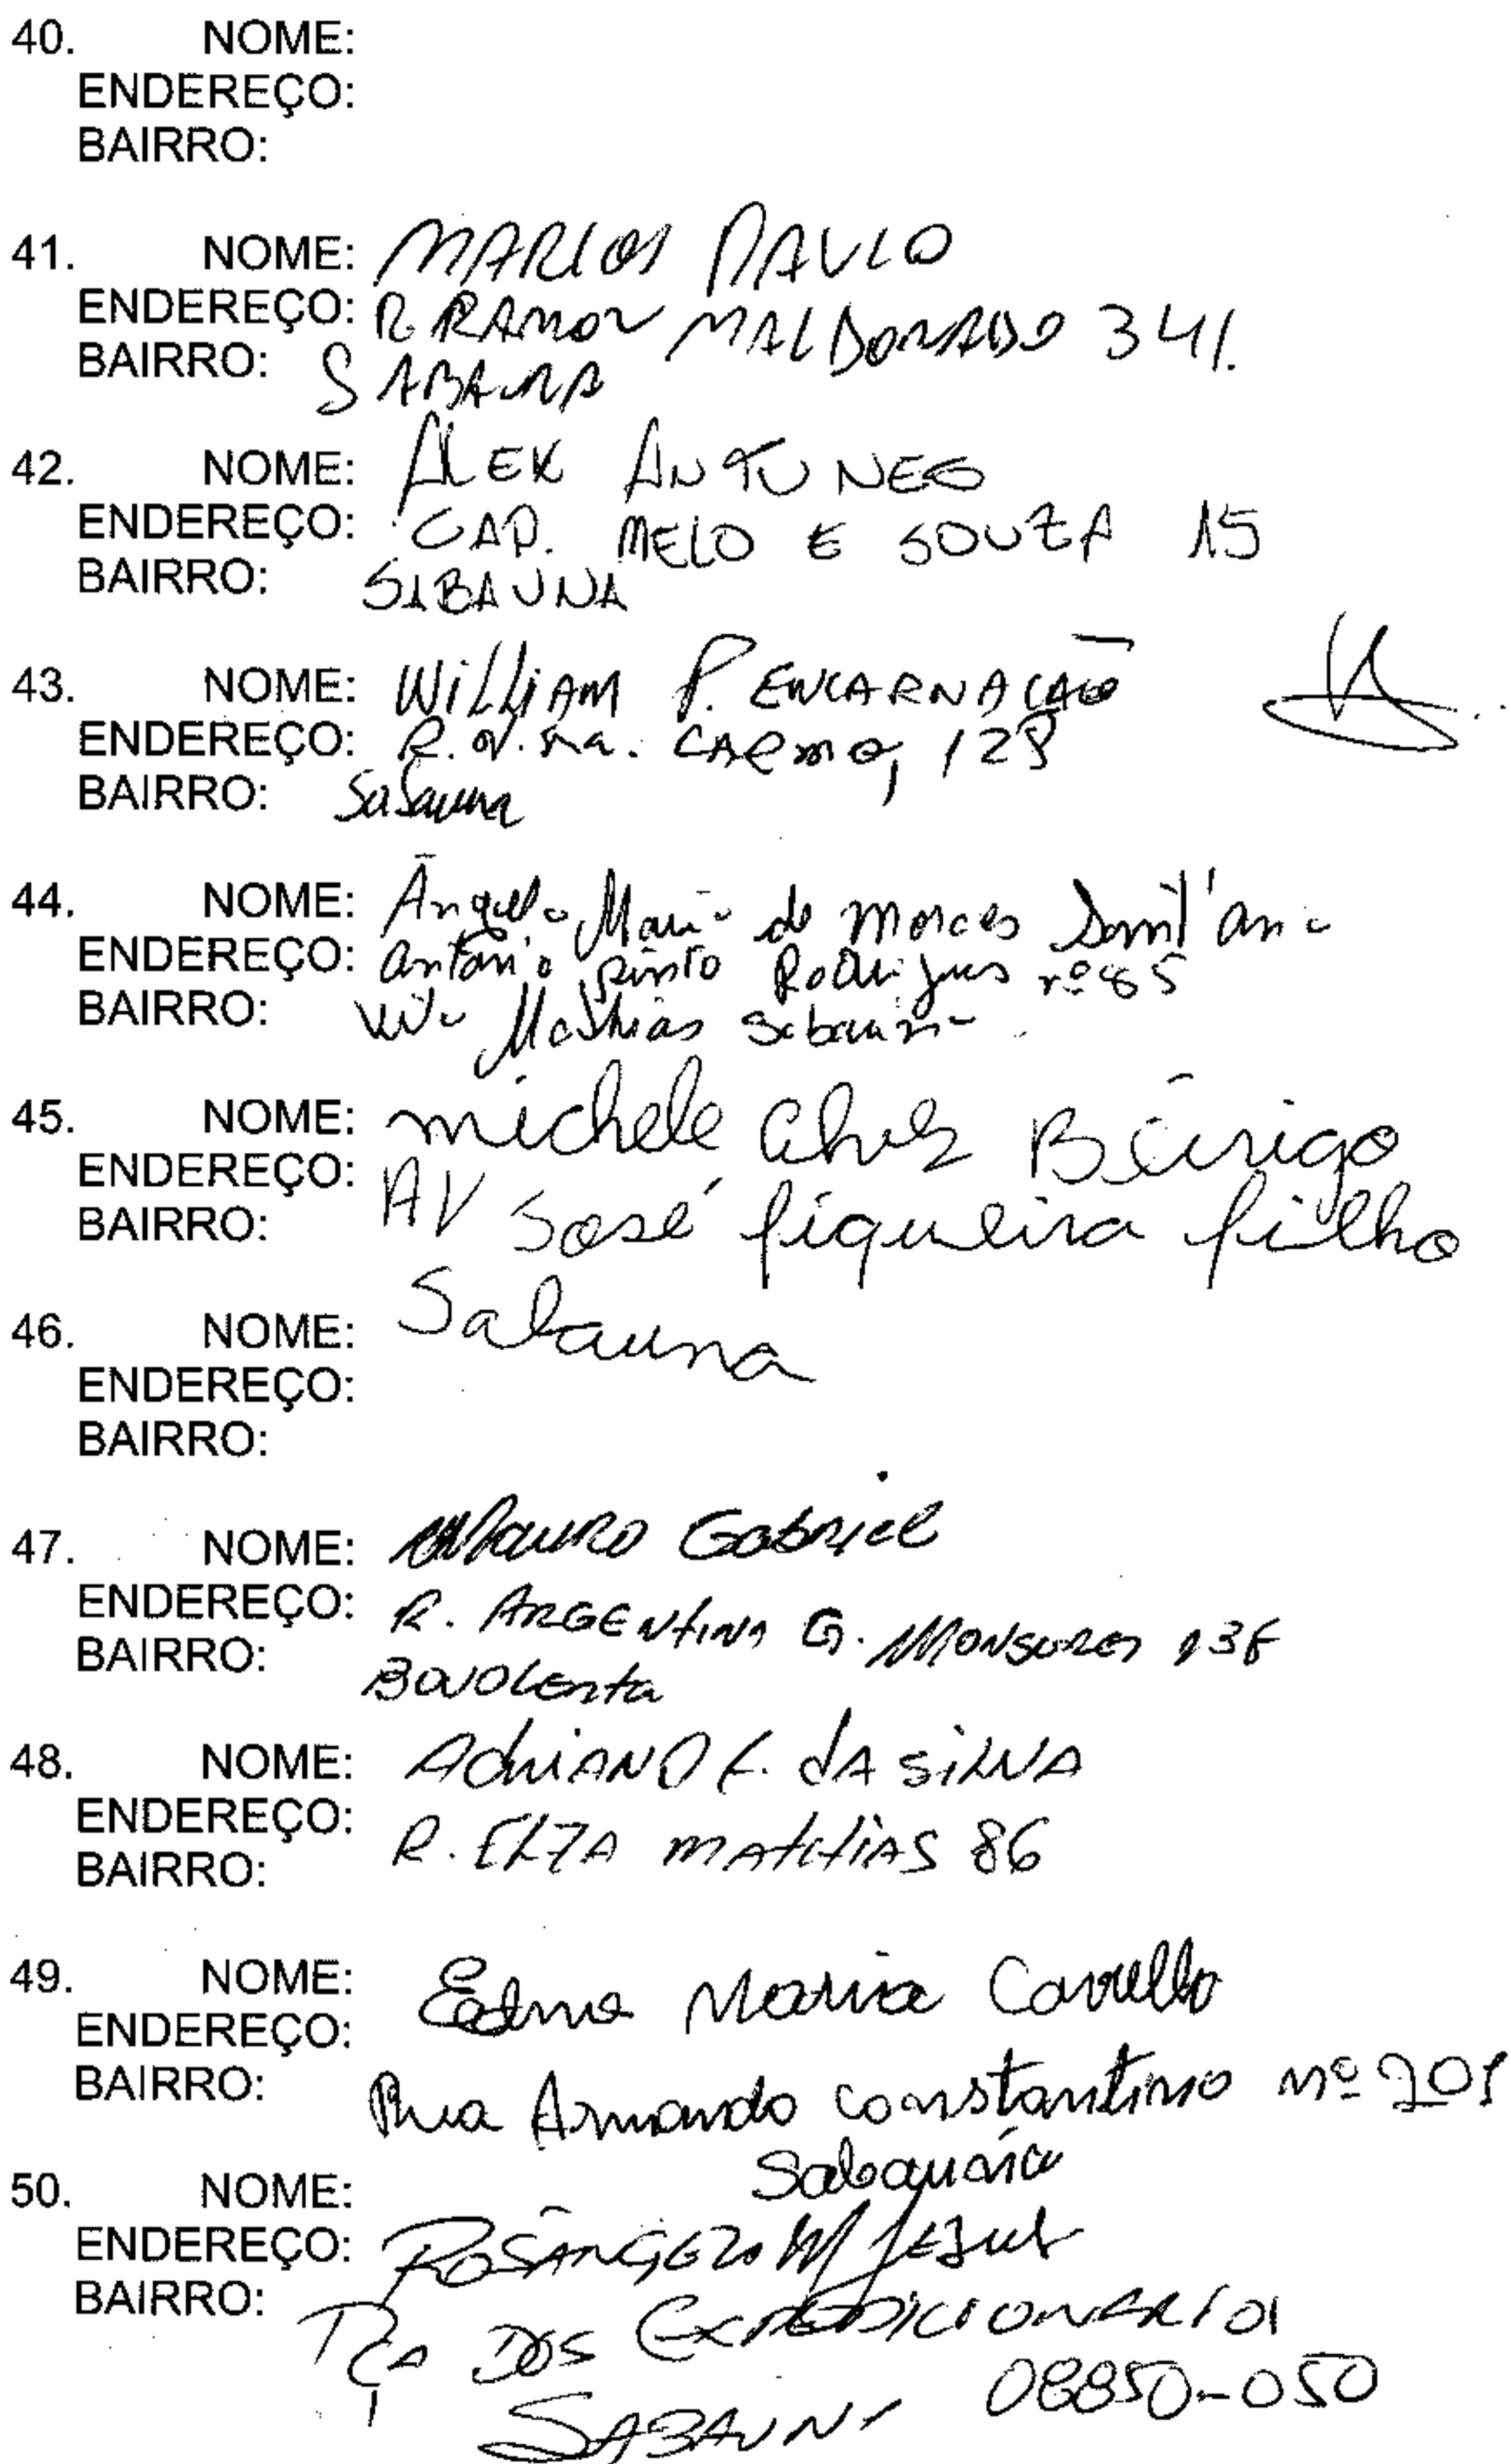 40. NOME:
ENDEREÇO:
BAIRRO:
41. NOME: MARCOS PAULO
ENDEREÇO: R RAMON MALDONADO 341.
BAIRRO: SABAUNA
42. NOME: ALEX ANTUNES
ENDEREÇO: CAP. MELO E SOUZA 15
BAIRRO: SABAUNA
43. NOME: WilliAM P. ENCARNAÇÃO
ENDEREÇO: R. N. Sra. CARMO, 128
BAIRRO: Sabauna
44. NOME: Ângela Maria de Moraes Sant'ana
ENDEREÇO: Antônio pinto Rodrigues nº 85
BAIRRO: Vila Mathias Sabauna
45. NOME: michele alves
ENDEREÇO: AV José figueira filho
BAIRRO: Sabauna
46. NOME:
ENDEREÇO:
BAIRRO:
47. NOME: Mauro Gabriel
ENDEREÇO: R. ARGENtINA G.
BAIRRO: Bovolenta
48. NOME: AdriANO F. dA SiLVA
ENDEREÇO: R. ELZA MAtHiAS 86
BAIRRO:
49. NOME: Edma Maria
ENDEREÇO: Rua Armando constantino nº 201
BAIRRO: Sabauna
50. NOME: ROSÂNGELA M JESUS
ENDEREÇO: PÇA DOS EXPEDICIONARIOS
BAIRRO: SABAUNA 08850-050